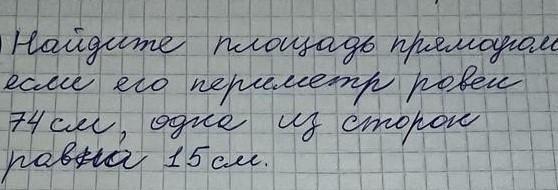 Найдите площадь прямоугол
если его периметр равен
74 см, одна из сторон
равна 15 см.